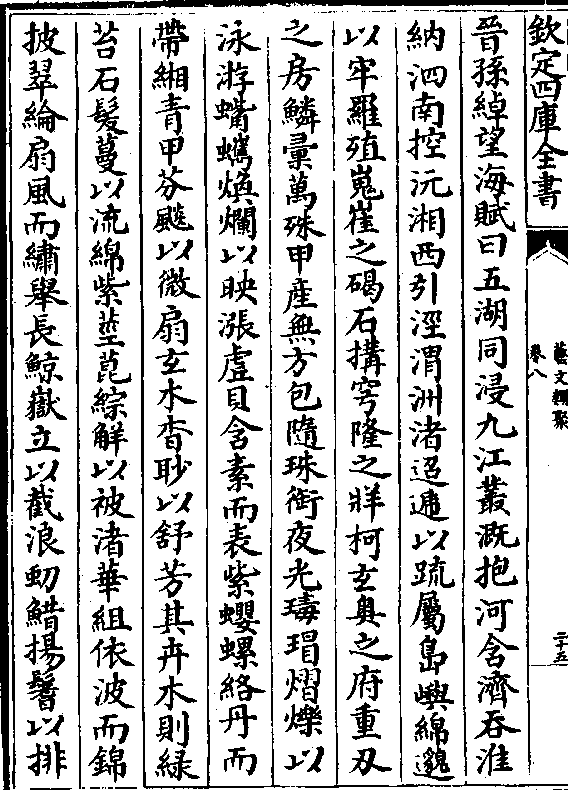 欽定四庫全書
藝文類聚
卷八
二十五
晉孫綽望海賦曰五湖同浸九江叢溉抱河含濟吞淮
納泗南控沅湘西引涇渭洲渚迢遞以疏屬島嶼綿邈
以牢羅殖嵬崔之碣石搆穹隆之牂柯玄奥之府重刄
之房鱗彙萬殊甲産無方包隨珠銜夜光瑇瑁熠爍以
泳游蟕蠵煥爛以映漲虚貝含素而表紫螺絡丹而
帶緗青甲芬飈以微扇玄木杳眇以舒芳其卉木則緑
苔石髮蔓以流綿紫莖菎綜解以被渚華組依波而錦
披翠綸扇風而繡舉長鯨嶽立以截浪揚鬐以排